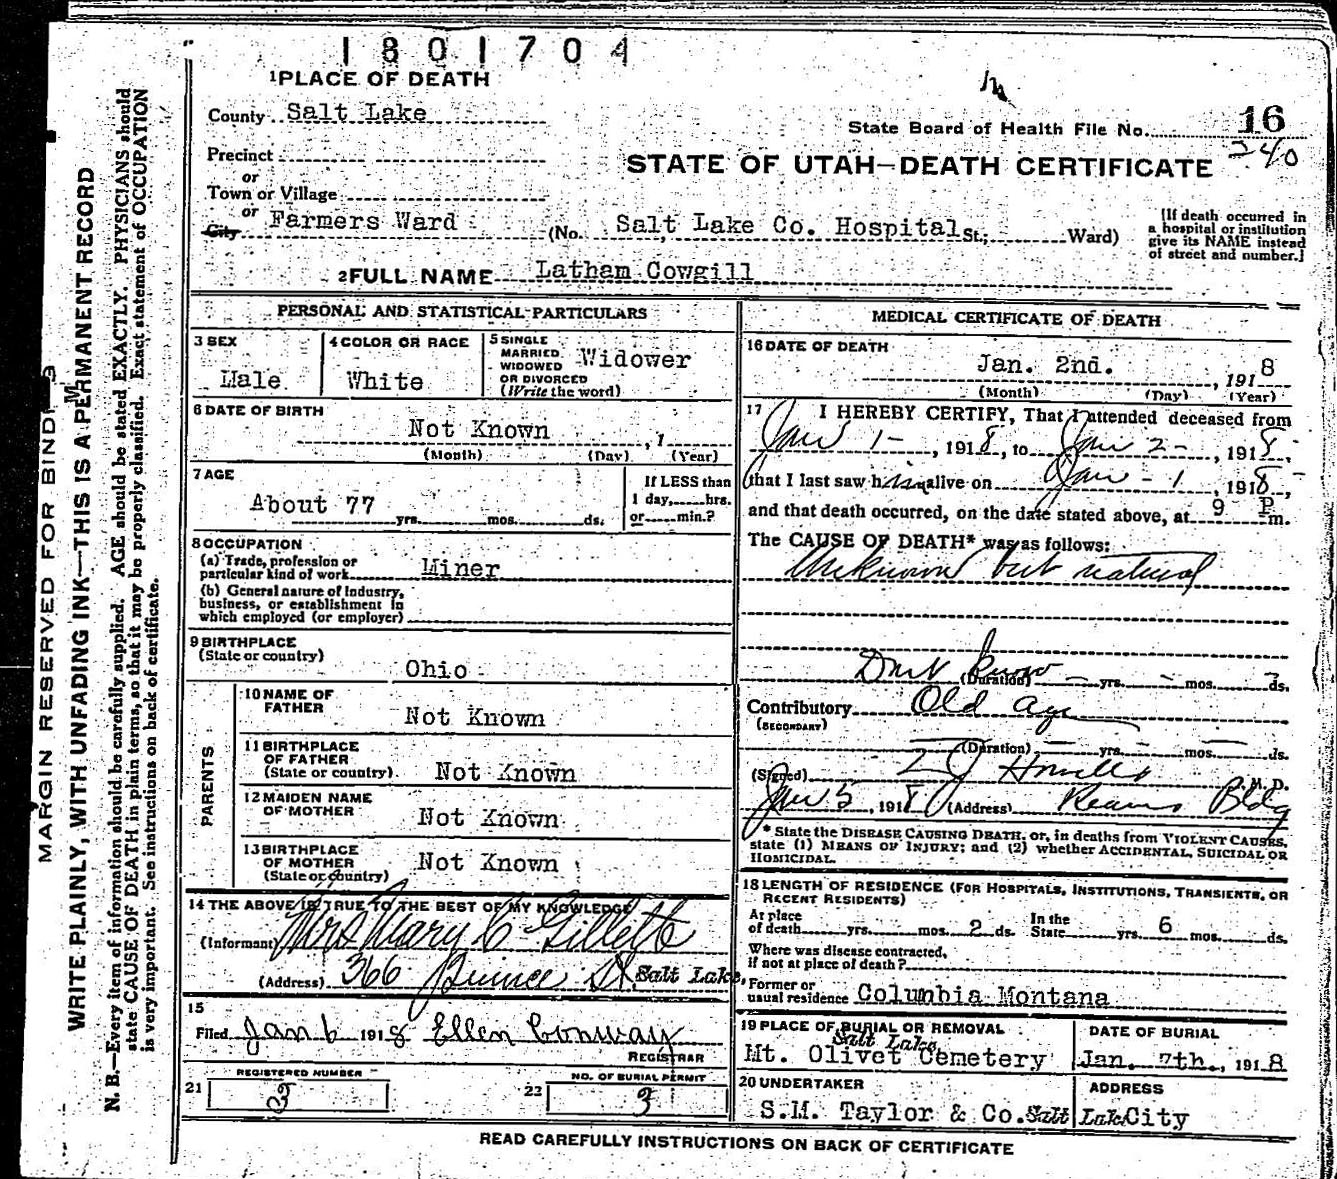 1801704
1 PLACE OF DEATH
County Salt Lake
State Board of Health File No. 16
240
Precinct
or
Town or Village
or
City Farmers Ward (No. Salt Lake Co. Hospital St.; Ward)
STATE OF UTAH—DEATH CERTIFICATE
[If death occurred in
a hospital or institution
give its NAME instead
of street and number.]
2 FULL NAME Latham Cowgill
PERSONAL AND STATISTICAL PARTICULARS
3 SEX
Male
4 COLOR OR RACE
White
5 SINGLE
MARRIED
WIDOWED
OR DIVORCED
(Write the word)
Widower
6 DATE OF BIRTH
Not Known , 1
(Month) (Day) (Year)
7 AGE
About 77
yrs. mos. ds.
If LESS than
1 day, hrs.
or min.?
8 OCCUPATION
(a) Trade, profession or
particular kind of work Miner
(b) General nature of Industry,
business, or establishment in
which employed (or employer)
9 BIRTHPLACE
(State or country)
Ohio
PARENTS
10 NAME OF
FATHER
Not Known
11 BIRTHPLACE
OF FATHER
(State or country)
Not Known
12 MAIDEN NAME
OF MOTHER
Not Known
13 BIRTHPLACE
OF MOTHER
(State or country)
Not Known
14 THE ABOVE IS TRUE TO THE BEST OF MY KNOWLEDGE
(Informant) Mrs Mary C Gillette
(Address) 366 Quince St. Salt Lake,
15
Filed Jan 6 1918 Ellen Conway
REGISTRAR
21 REGISTERED NUMBER
3
22 NO. OF BURIAL PERMIT
3
MEDICAL CERTIFICATE OF DEATH
16 DATE OF DEATH
Jan. 2nd. , 1918
(Month) (Day) (Year)
17 I HEREBY CERTIFY, That I attended deceased from
Jan 1- , 1918, to Jan 2- , 1918,
that I last saw him alive on Jan - 1 , 1918,
and that death occurred, on the date stated above, at 9 P m.
The CAUSE OF DEATH* was as follows:
Unknown but natural
Dont know
(Duration) yrs. mos. ds.
Contributory Old Age
(SECONDARY)
(Duration) yrs. mos. ds.
(Signed) Howells M. D.
Jan 5, 1918 (Address) Kearns Bldg
* State the DISEASE CAUSING DEATH, or, in deaths from VIOLENT CAUSES,
state (1) MEANS OF INJURY; and (2) whether ACCIDENTAL, SUICIDAL OR
HOMICIDAL.
18 LENGTH OF RESIDENCE (FOR HOSPITALS, INSTITUTIONS, TRANSIENTS, OR
RECENT RESIDENTS)
At place
of death yrs. mos. 2 ds.
In the
State yrs. 6 mos. ds.
Where was disease contracted,
if not at place of death?
Former or
usual residence Columbia Montana
19 PLACE OF BURIAL OR REMOVAL
Salt Lake
Mt. Olivet Cemetery
DATE OF BURIAL
Jan. 7th., 1918
20 UNDERTAKER
S.M. Taylor & Co. Salt Lake City
ADDRESS
READ CAREFULLY INSTRUCTIONS ON BACK OF CERTIFICATE
MARGIN RESERVED FOR BINDING
WRITE PLAINLY, WITH UNFADING INK—THIS IS A PERMANENT RECORD
N. B.—Every item of information should be carefully supplied. AGE should be stated EXACTLY. PHYSICIANS should
state CAUSE OF DEATH in plain terms, so that it may be properly classified. Exact statement of OCCUPATION
is very important. See instructions on back of certificate.